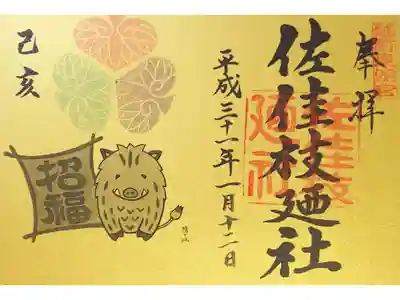 奉拝
佐佳枝廼社
佐佳枝
廼社
平成三十一年一月十二日
己亥
招福